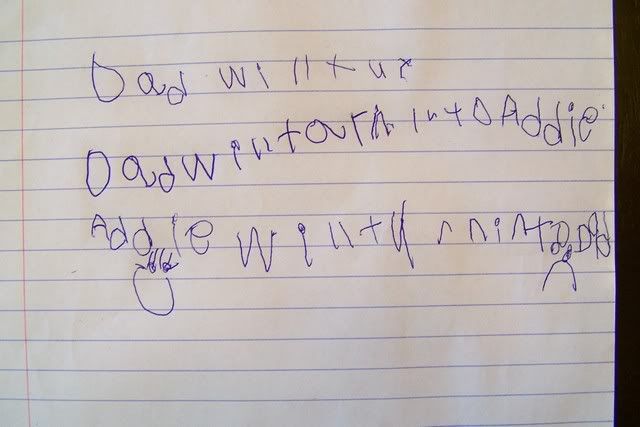 Dad will tur
Dad will tourn into Addie
Addie will turn into Dad